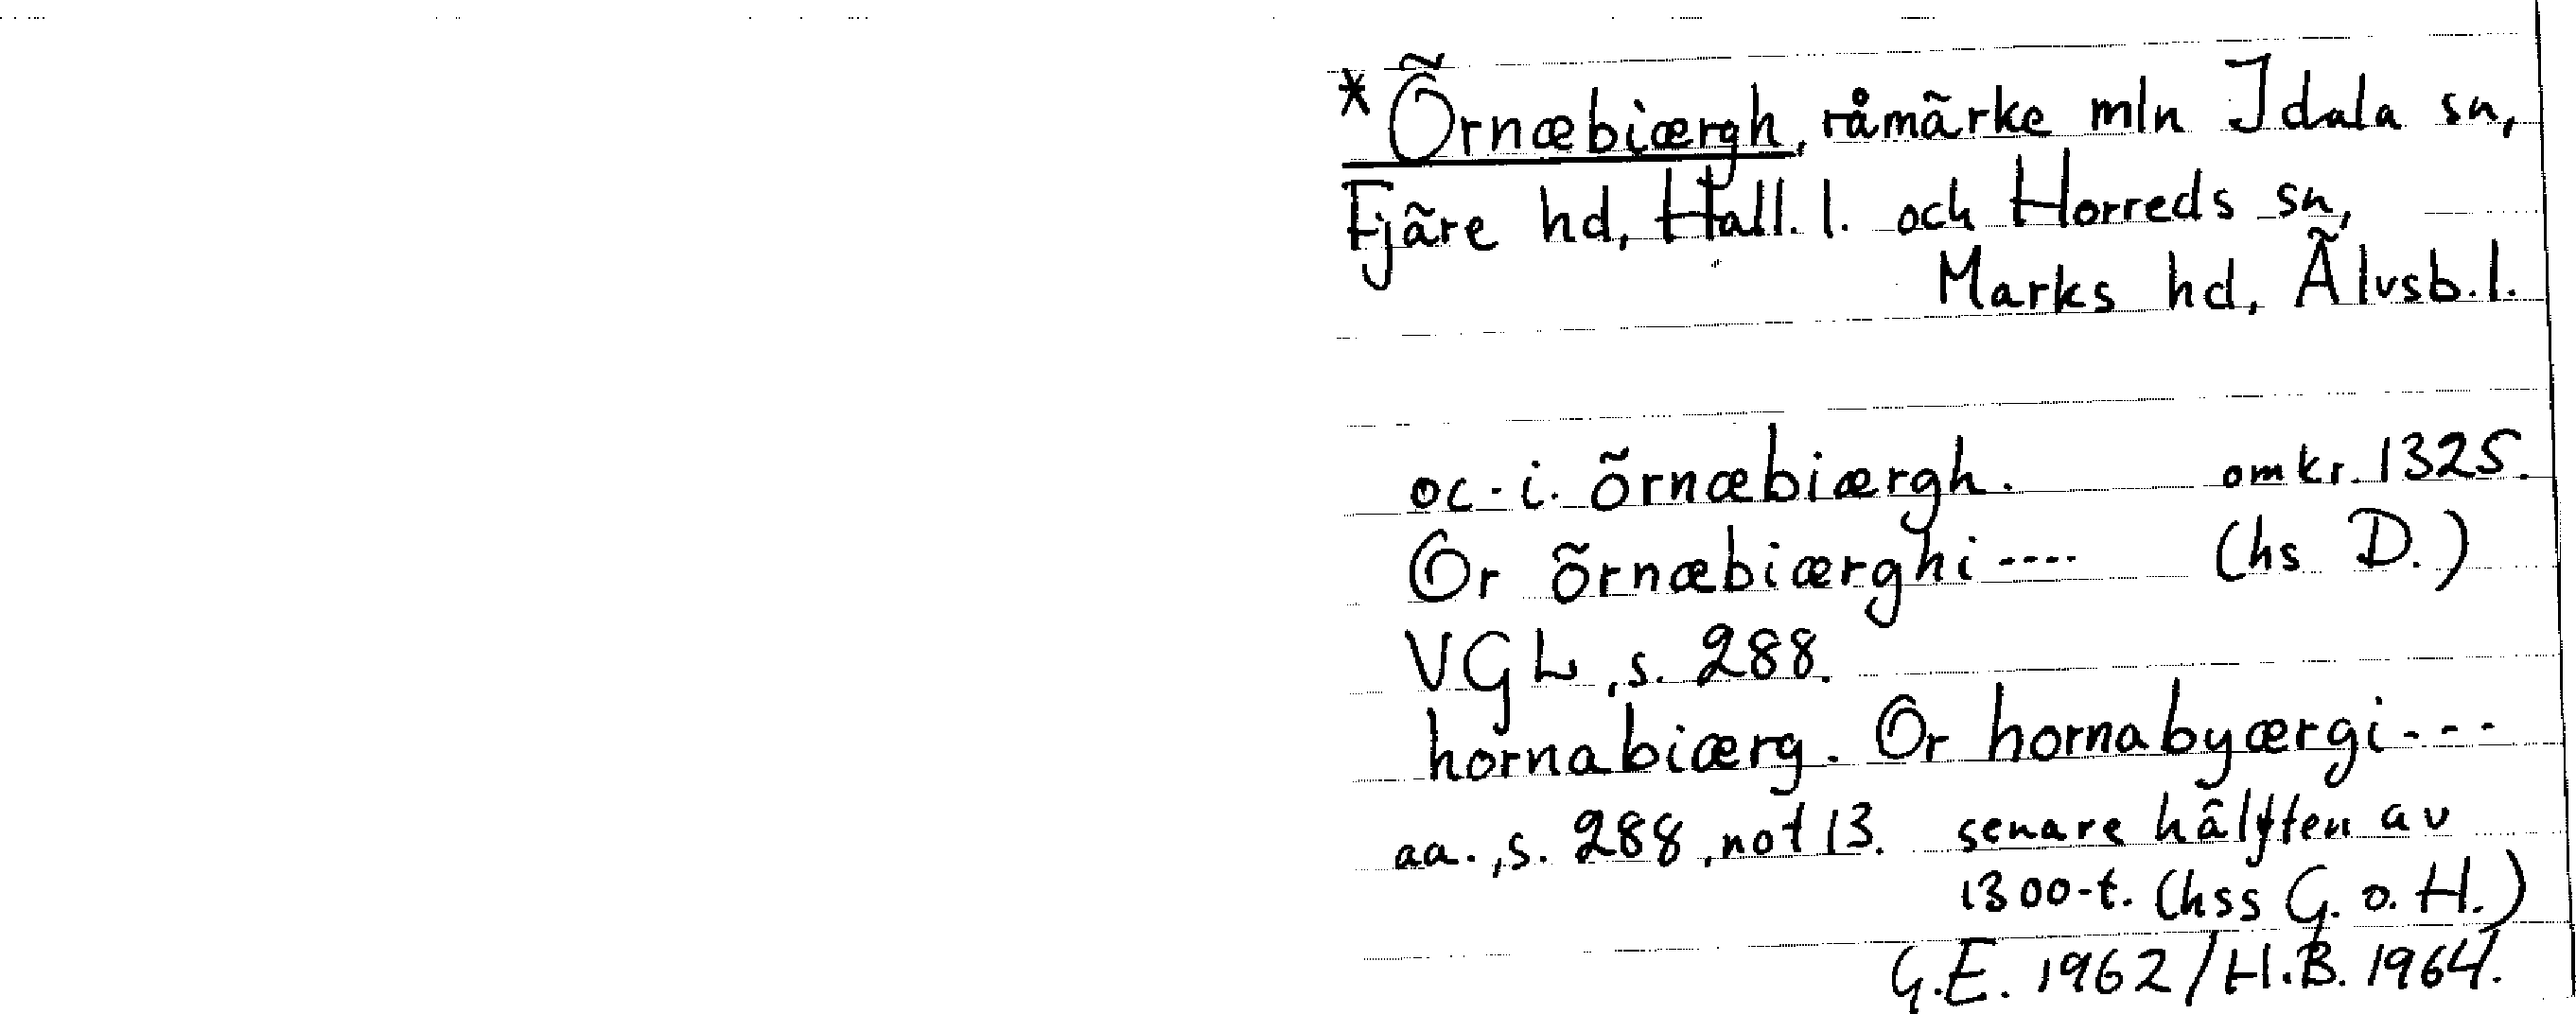 * Örnæbiærgh, råmärke mln Idala sn,
Fjäre hd, Hall. l. och Horreds sn,
Marks hd, Älvsb. l.
oc - i. örnæbiærgh. omkr. 1325.
Or örnæbiærghi ---- (hs D.)
VGL, s. 288.
hornabiærg. Or hornabyærgi ---
aa., s. 288, not 13. senare hälften av
1300-t. (hss G. o. H.)
G.E. 1962 / H.B. 1964.